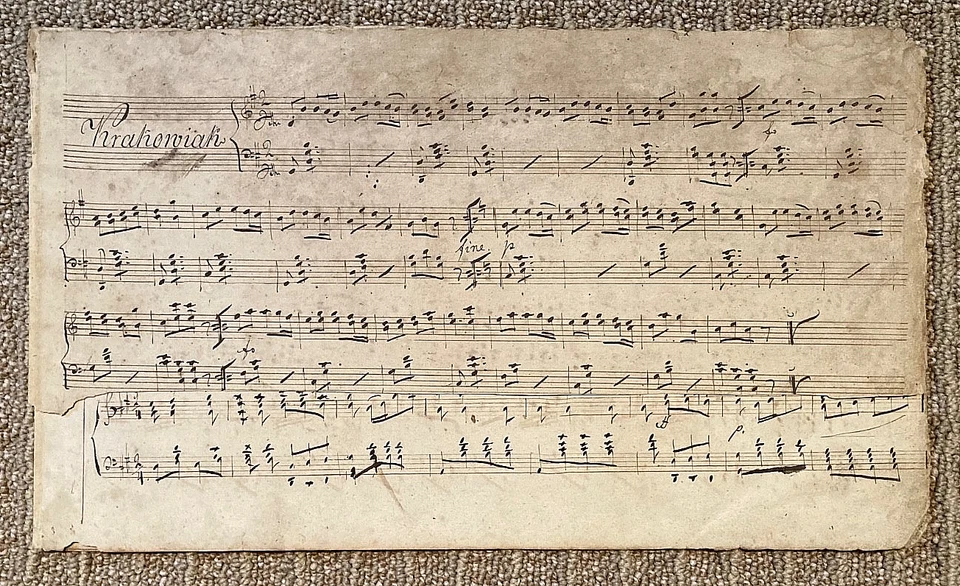 Krakowiak
fine. p
p.